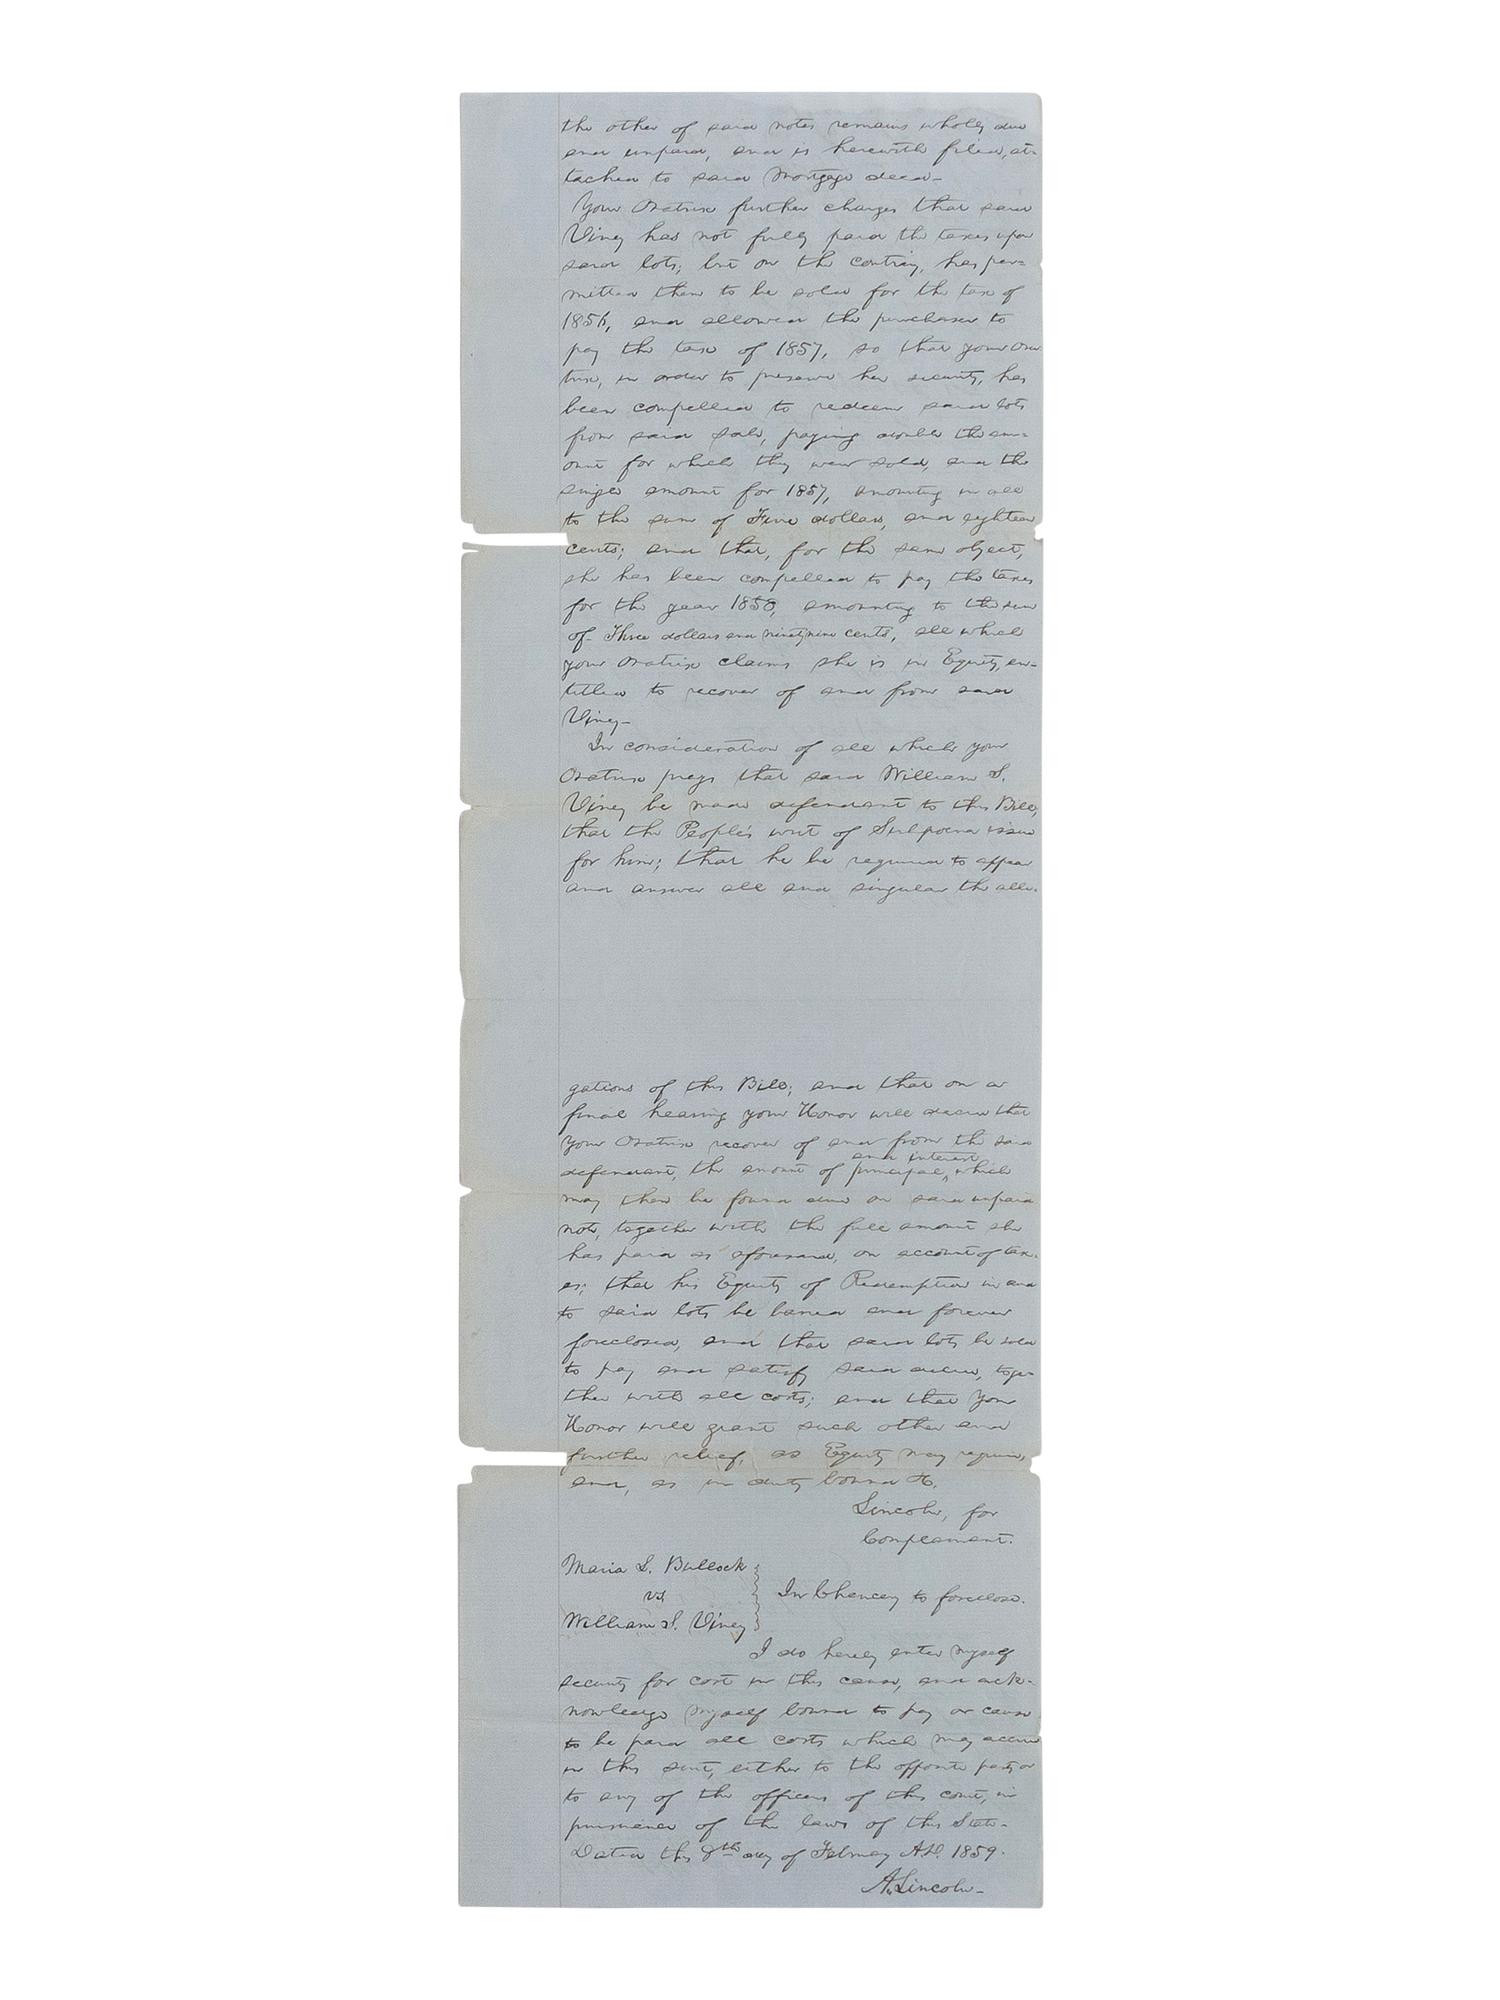 the other of said notes remains wholly due
and unpaid, and is herewith filed, at-
tached to said Mortgage deed-
Your Oratrix further charges that said
Viney has not fully paid the taxes upon
said lots; but on the contrary, has per-
mitted them to be sold for the tax of
1856, and allowed the purchaser to
pay the tax of 1857, so that your Ora-
trix, in order to preserve her security, has
been compelled to redeem said lots
from said sale, paying double the am-
ount for which they were sold, and the
single amount for 1857, amounting in all
to the sum of Five dollars, and eighteen
cents; and that, for the same object,
she has been compelled to pay the taxes
for the year 1858, amounting to the sum
of Three dollars and ninetynine cents, all which
your Oratrix claims she is in Equity, en-
titled to recover of and from said
Viney-
In consideration of all which your
Oratrix prays that said William S.
Viney be made defendant to this Bill,
that the People's writ of Subpoena issue
for him; that he be required to appear
and answer all and singular the alle-
gations of this Bill; and that on a
final hearing your Honor will decree that
your Oratrix recover of and from the said
defendant, the amount of principal, and interest which
may then be found due on said unpaid
note, together with the full amount she
has paid as aforesaid, on account of tax-
es; that his Equity of Redemption in and
to said lots be barred and forever
foreclosed, and that said lots be sold
to pay and satisfy said decree, toge-
ther with all costs; and that your
Honor will grant such other and
further relief, as Equity may require,
and, as in duty bound &c.
Lincoln, for
Complainant.
Maria L. Bullock
vs
William S. Viney
In Chancery to foreclose.
I do hereby enter myself
security for cost in this cause, and ack-
nowledge myself bound to pay or cause
to be paid all costs which may accrue
in this suit, either to the opposite party or
to any of the officers of this court, in
pursuance of the laws of this State-
Dated this 8th day of February A.D. 1859.
A. Lincoln-